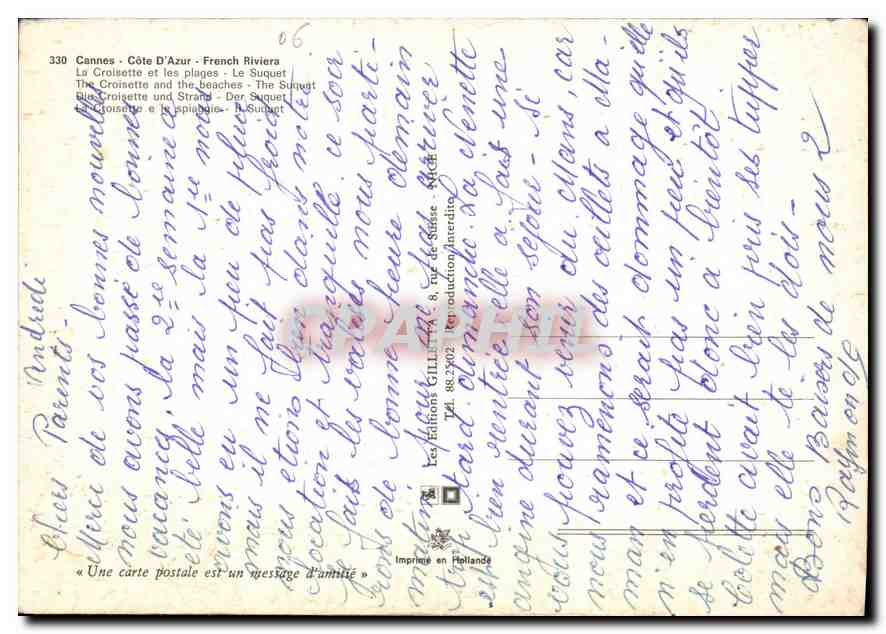 06
330 Cannes - Côte D'Azur - French Riviera
La Croisette et les plages - Le Suquet
The Croisette and the beaches - The Suquet
Die Croisette und Strand - Der Suquet
La Croisette e le spiaggie - Il Suquet
Vendredi
Chers Parents -
Merci de vos bonnes nouvelles
nous avons passé de bonnes
vacances, la 2ème semaine a
été belle mais la 1ère nous
avons eu un peu de pluie
mais il ne fait pas froid
nous étions bien dans notre
location et tranquille ce soir
je fais les valises nous parti-
rons de bonne heure demain
matin pour ne pas arriver
trop tard dimanche. La Nenette
est bien rentrée elle a fait une
angine durant son séjour - si
vous pouvez venir du Mans, car
nous ramenons des oeillets a Ma-
man et ce serait dommage qu'elle
n'en profite pas un peu et qu'ils
se perdent donc a bientôt
Colette avait bien pris ses tupper
mais elle te les dois -
Bons Baisers de nous 2
Raymonde
Les Editions GILLETTA - 8, rue de Suisse - NICE
Tél. 88.25.02 - Reproduction Interdite
CPAPHIL
Imprimé en Hollande
« Une carte postale est un message d'amitié »